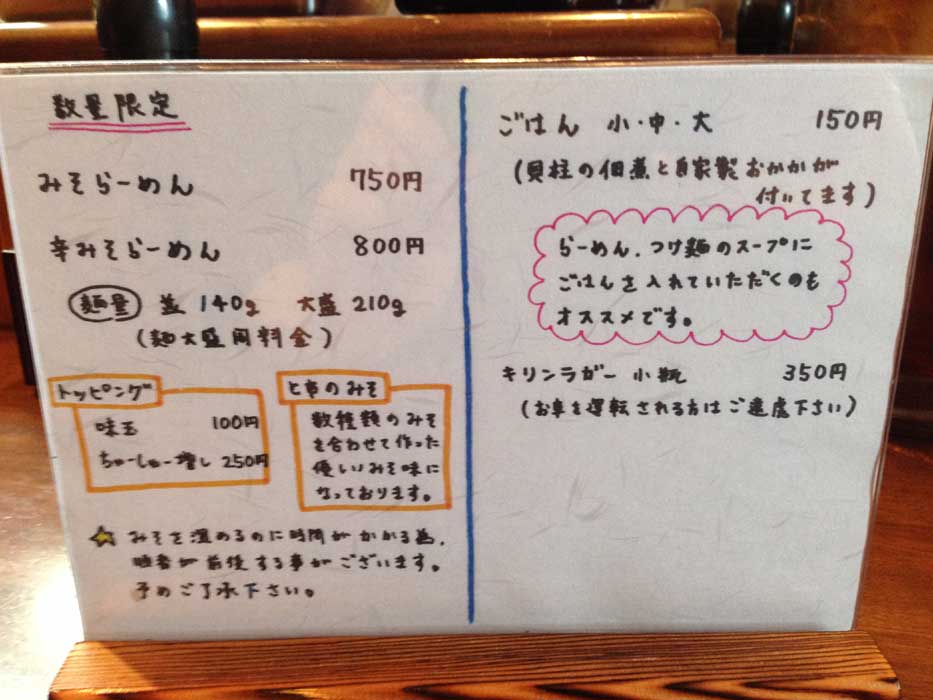 数量限定
みそらーめん 750円
辛みそらーめん 800円
麺量 並 140g 大盛 210g
(麺大盛同料金)
トッピング
味玉 100円
ちゃーしゅー増し 250円
と市のみそ
数種類のみそ
を合わせて作った
優しいみそ味に
なっております。
☆ みそを温めるのに時間がかかる為、
順番が前後する事がございます。
予めご了承下さい。
ごはん 小・中・大 150円
(貝柱の佃煮と自家製おかかが
付いてます)
らーめん、つけ麺のスープに
ごはんを入れていただくのも
オススメです。
キリンラガー 小瓶 350円
(お車を運転される方はご遠慮下さい)